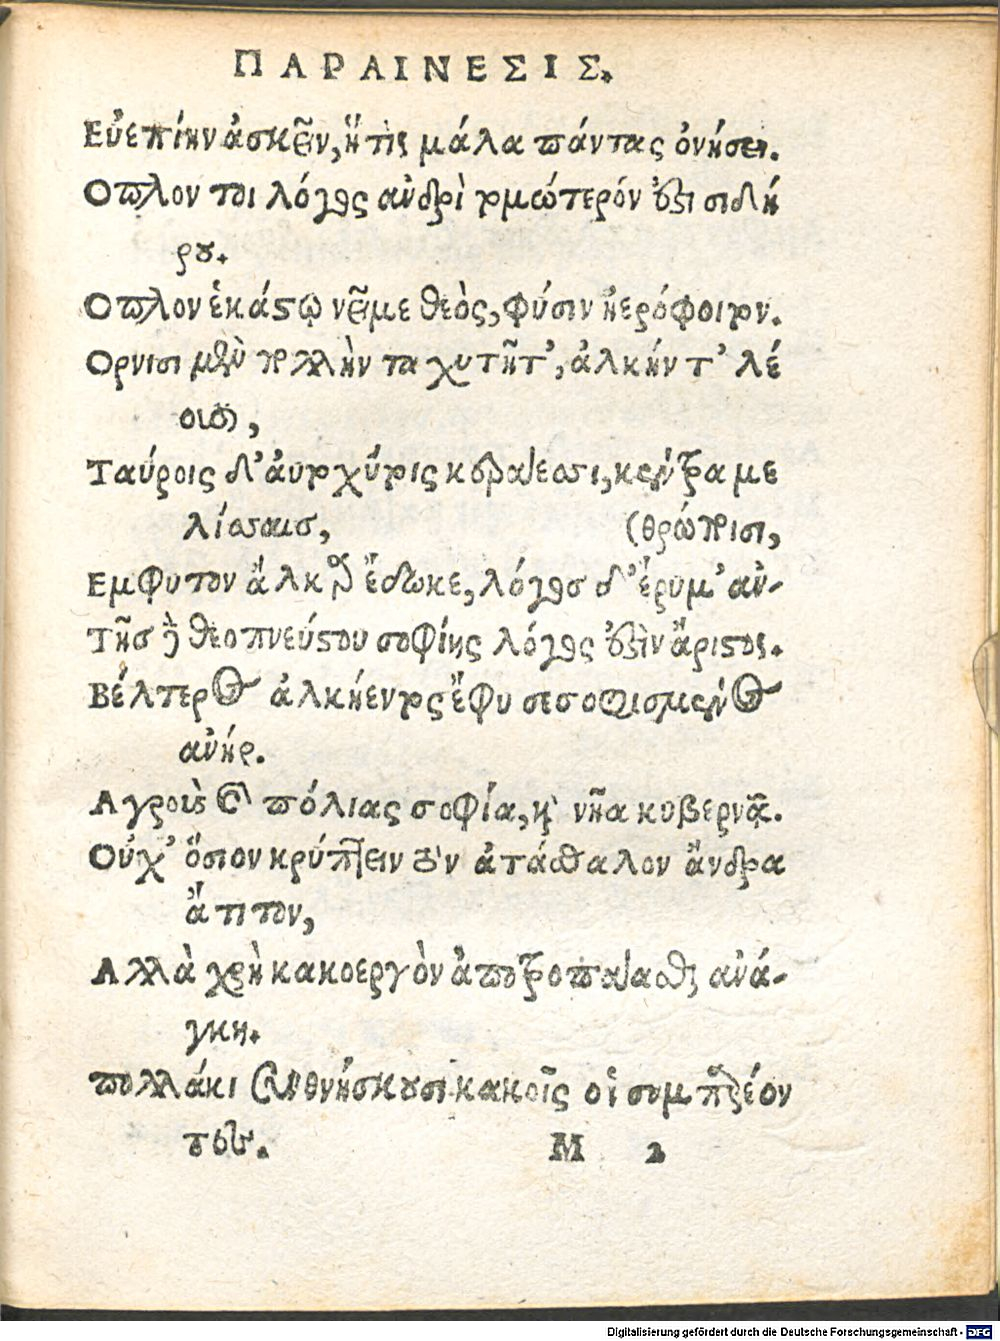 ΠΑΡΑΙΝΕΣΙΣ.
Εὐεπίην ἀσκεῖν, ἥτις μάλα πάντας ὀνήσει.
Οπλον τοι λόγος ἀνδρὶ τομώτερόν ἐστι σιδή
ρου.
Οπλον ἑκάστῳ νεῖμε θεὸς, φύσιν ἠερόφοιτον.
Ορνισι μὲν πολλὴν ταχυτῆτ', ἀλκήν τ' λέ
ουσι,
Ταύροις δ' αὐτοχύτοις κεράεσσι, κέντρα με
λίσσαις,
(θρώποισι,
Εμφυτον ἄλκαρ ἔδωκε, λόγος δ' ἔρυμ' ἀν-
Τῆς δὲ θεοπνεύστου σοφίης λόγος ἐστὶν ἄριστος.
Βέλτερος ἀλκήεντος ἔφυ σεσοφισμένος
ἀνήρ.
Αγροὺς καὶ πόλιας σοφία, καὶ νῆα κυβερνᾷ.
Οὐχ' ὅσιον κρύπτειν τὸν ἀτάσθαλον ἄνδρα
ἄτιτον,
Αλλὰ χρὴ κακοεργὸν ἀποτροπάασθαι ἀνά-
γκη.
πολλάκι συνθνήσκουσι κακοῖς οἱ συμπλέον
τες.
M 2
Digitalisierung gefördert durch die Deutsche Forschungsgemeinschaft - DFG